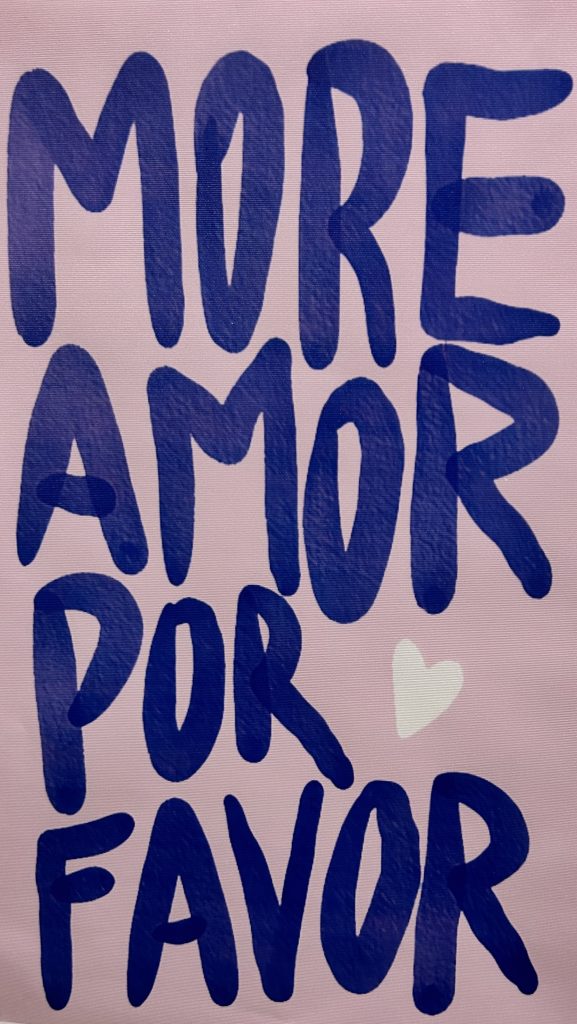 MORE
AMOR
POR
FAVOR